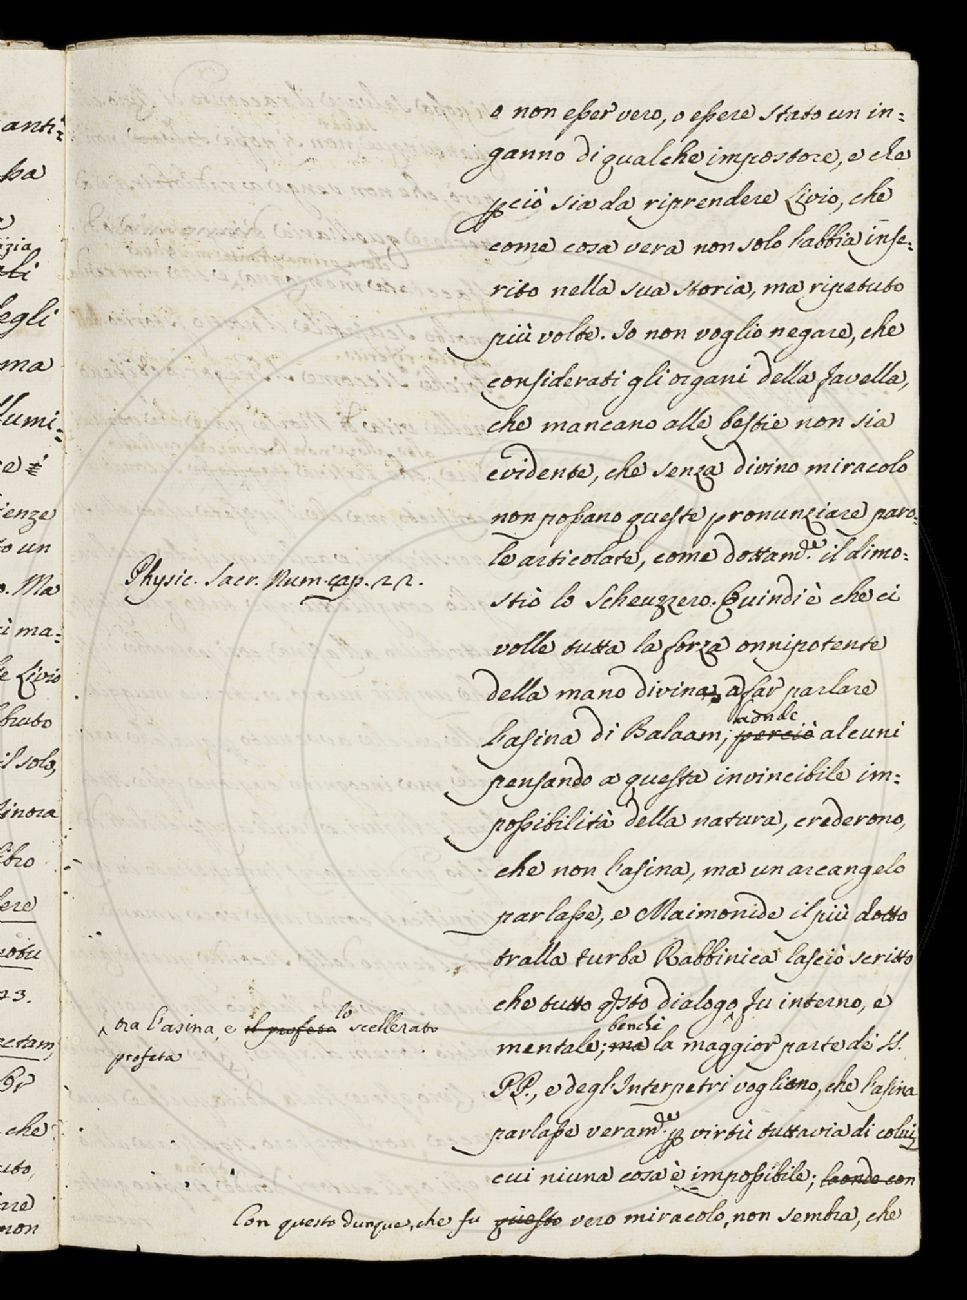 anti=
pa
izia
egli
ma
lumi=
ienze
to un
o. Ma
ma=
e Livio
bruto
il solo,
inora
libro
23.
che
non
o non esser vero, o essere stato un in=
ganno di qualche impostore, e che
pciò sia da riprendere Livio, che
come cosa vera non solo l'abbia inse=
rito nella sua storia, ma ripetuto
più volte. Io non voglio negare, che
considerati gli organi della favella,
che mancano alle bestie non sia
evidente, che senza divino miracolo
non possano queste pronunziare paro=
le articolate, come dottam.de il dimo=
strò lo Scheuzzero. Quindi è che ci
Physic. Sacr. Num. cap. 22.
volle tutta la forza onnipotente
della mano divina, a far parlare
laonde
l'asina di Balaam; perciò alcuni
pensando a questa invincibile im=
possibilità della natura, crederono,
che non l'asina, ma un arcangelo
parlasse, e Maimonide il più dotto
tralla turba Rabbinica lasciò scritto
che tutto qsto dialogo ^ fu interno, e
^ tra l'asina, e il profeta lo scellerato
profeta
benchè
mentale; ma la maggior parte de SS.
PP., e degl'Interpetri vogliono, che l'asina
parlasse veram.de p virtù tuttavia di colui,
cui niuna cosa è impossibile; laonde con
Con questo dunque, che fu questo vero miracolo, non sembra, che